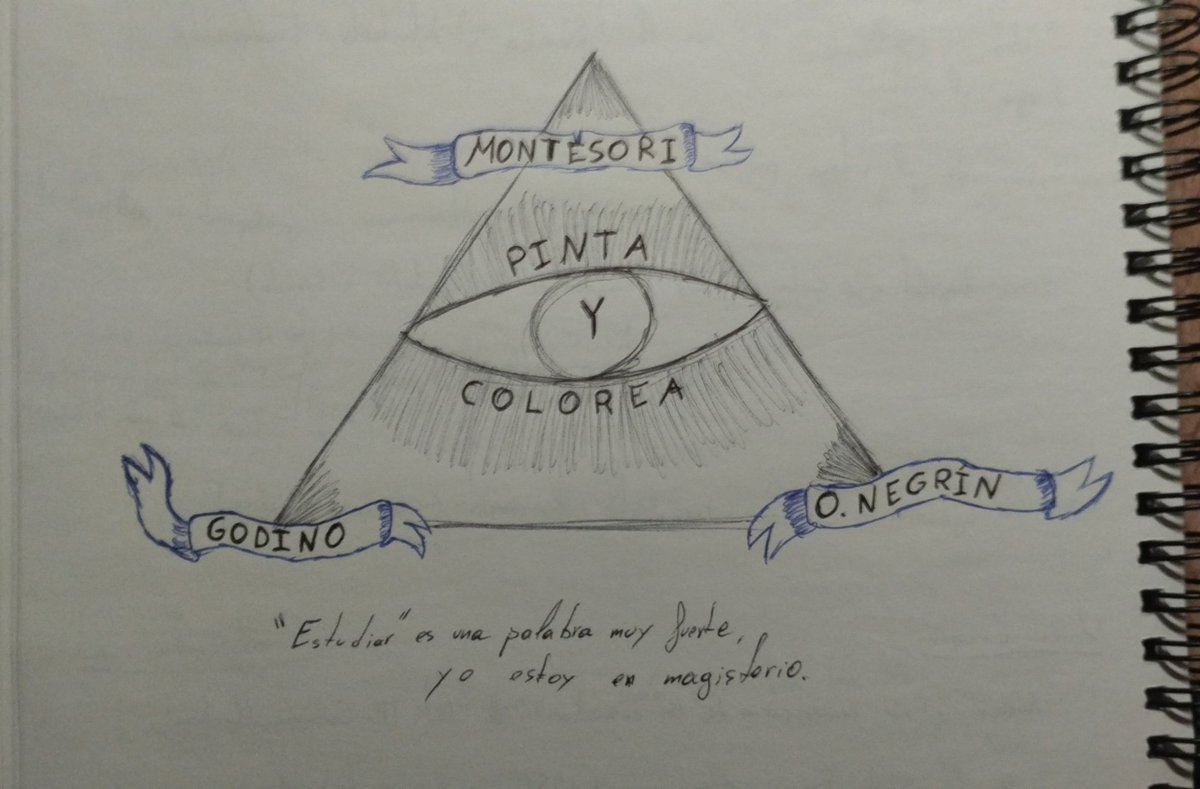 MONTESORI
PINTA
Y
COLOREA
GODINO
O. NEGRÍN
"Estudiar" es una palabra muy fuerte,
yo estoy en magisterio.